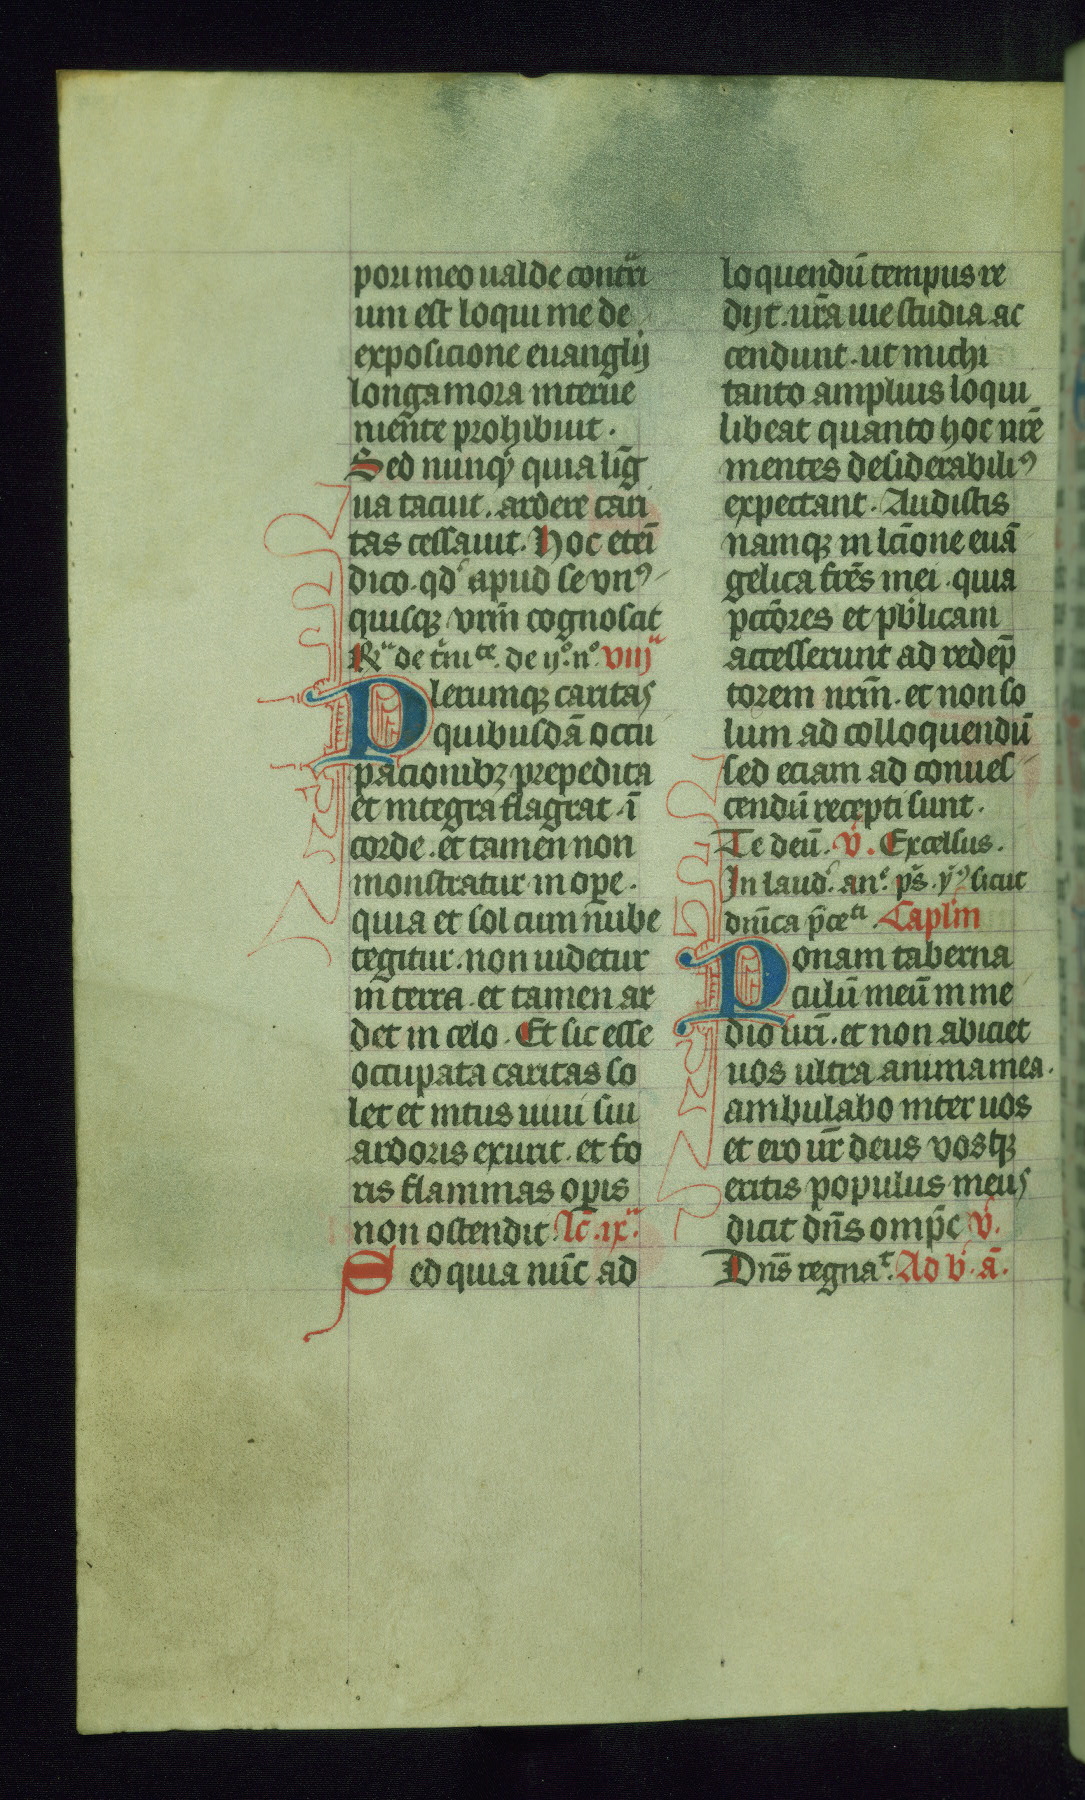 pori meo ualde contͣri
um est loqui me de
exposicione euanglij
longa mora interue
niēnte prohibuit.
Sed nunqͥ quia līg
ua tacuit. ardere cari
tas cessauit. Hoc eteī
dico. qdͨ apud se vnꝰ
quisqꝫ vrm̄ cognoscit
R̸ͫ de tͥnitͨᵉ. de ijº. nº. viijͣ
Plerumqꝫ caritas
quibusdā occu
pacionibꝫ prepedita
et integra flagrat. ī
corde. et tamen non
monstratur in ope.
quia et sol cum nube
tegitur. non uidetur
in terra. et tamen ar
det in celo. Et sic esse
occupata caritas so
let et intus uim sui
ardoris exurit. et fo
ris flammas opis
non ostendit Lc̄. ixͣ.
Sed quia nūc ad
loquendū tempus re
dijt. urā me studia ac
cendunt. ut michi
tanto amplius loqui
libeat quanto hoc urē
mentes desiderabiliꝰ
expectant. Audistis
namqꝫ in lc̄ione euā
gelica frēs mei. quia
pctōres et pūblicani
accesserunt ad redēp
torem nrm̄. et non so
lum ad colloquendū
sed eciam ad conues
cendū recepti sunt.
Te deū. v̄. Excelsus.
In laudͨ. anᵉ. p̄s. yͥꝰ sicut
dn̄ica p̄ceᵗⁱ. Caplm̄
Ponam taberna
culū meū in me
dio uri̅. et non abiciet
uos ultra anima mea.
ambulabo inter uos
et ero ur̄ deus vosqꝫ
eritis populus meus
dicit dn̄s omp̄c v̄.
Dn̄s regnaᵗ. Ad b̄. ā.